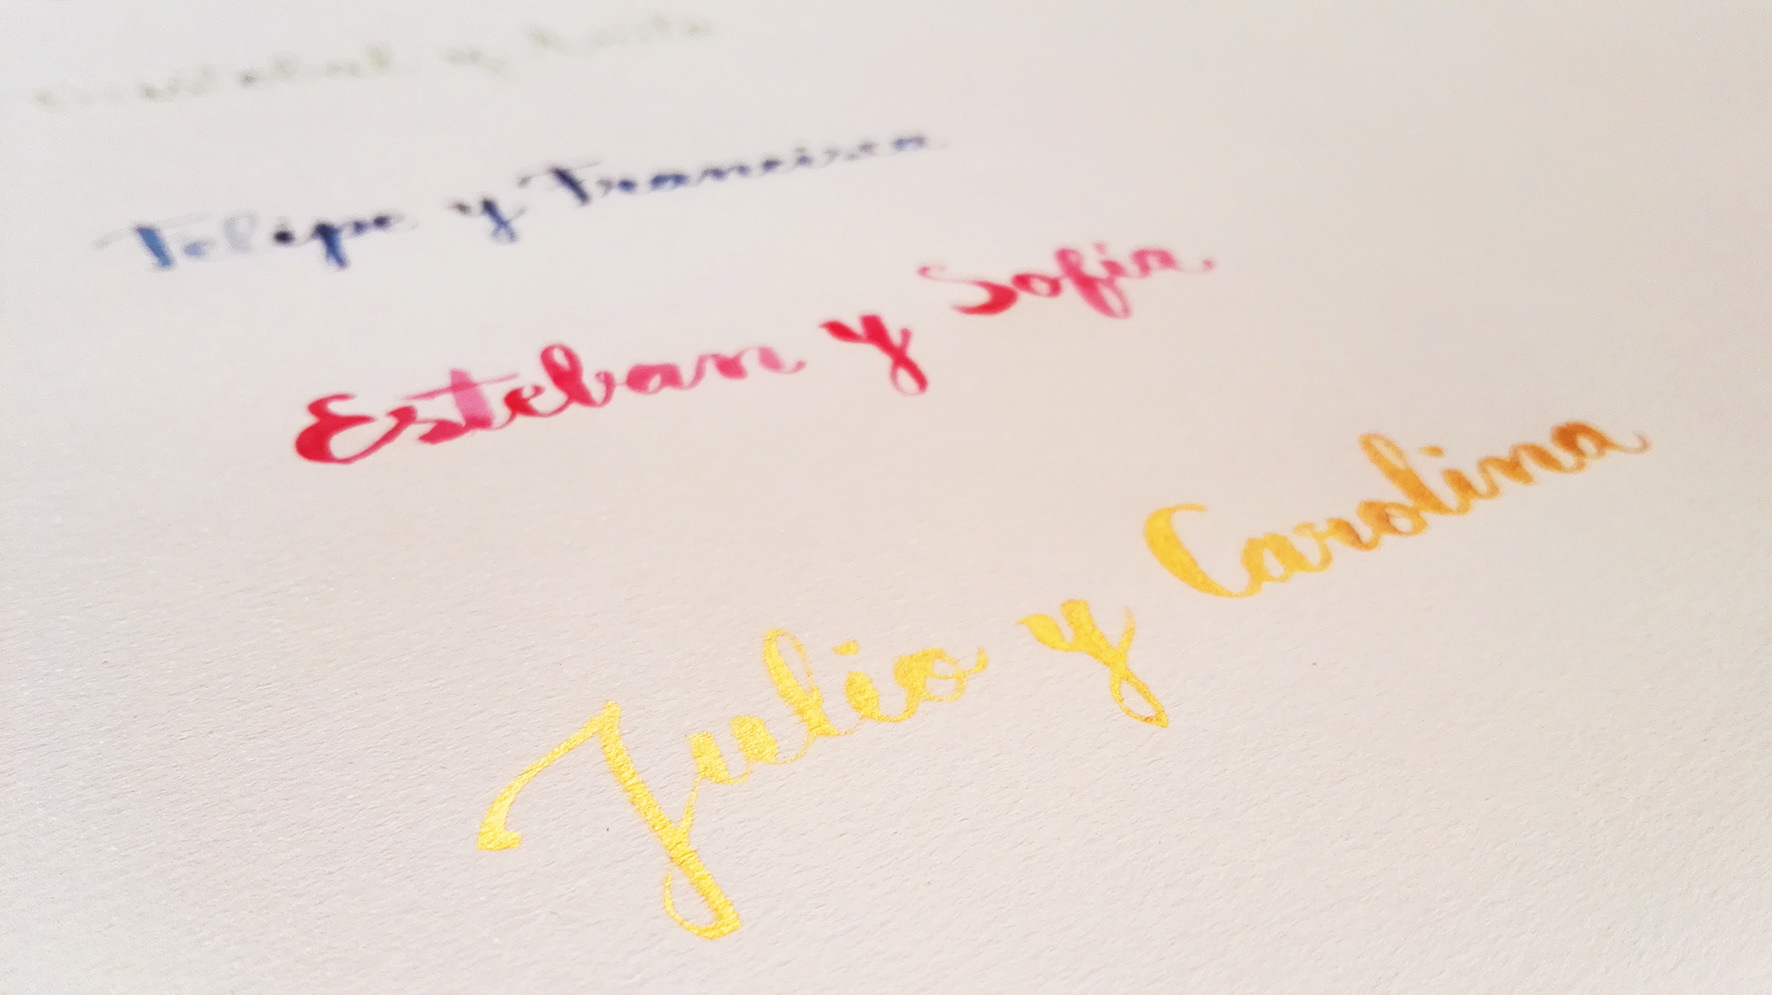 y
Felipe y Francisca
Esteban y Sofia
Julio y Carolina